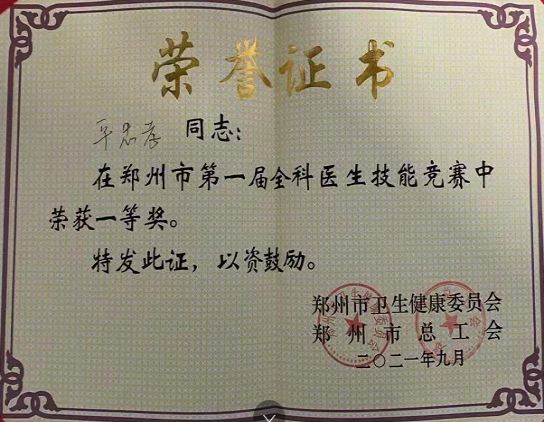 荣誉证书
辛忠孝 同志：
在郑州市第一届全科医生技能竞赛中
荣获一等奖。
特发此证，以资鼓励。
郑州市卫生健康委员会
郑州市总工会
二〇二一年九月